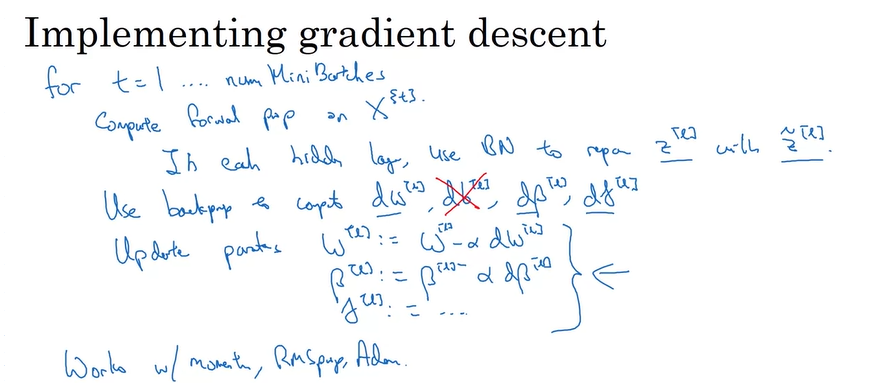 Implementing gradient descent
for t = 1 .... num MiniBatches
Compute forward prop on X^{t}.
In each hidden layer, use BN to replace z^[l] with z̃^[l].
Use backprop to compute dW^[l], db^[l], dβ^[l], dγ^[l]
Update parameters W^[l] := W^[l] - α dW^[l]
β^[l] := β^[l] - α dβ^[l]
γ^[l] := ....
Works w/ momentum, RMSprop, Adam.